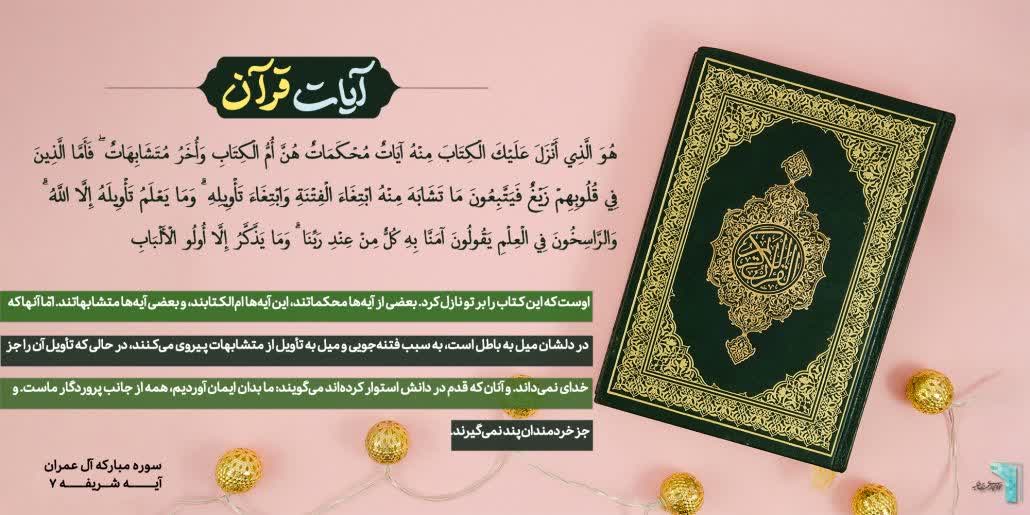 آیات قرآن
هُوَ الَّذِي أَنْزَلَ عَلَيْكَ الْكِتَابَ مِنْهُ آيَاتٌ مُحْكَمَاتٌ هُنَّ أُمُّ الْكِتَابِ وَأُخَرُ مُتَشَابِهَاتٌ ۖ فَأَمَّا الَّذِينَ
فِي قُلُوبِهِمْ زَيْغٌ فَيَتَّبِعُونَ مَا تَشَابَهَ مِنْهُ ابْتِغَاءَ الْفِتْنَةِ وَابْتِغَاءَ تَأْوِيلِهِ ۗ وَمَا يَعْلَمُ تَأْوِيلَهُ إِلَّا اللَّهُ ۗ
وَالرَّاسِخُونَ فِي الْعِلْمِ يَقُولُونَ آمَنَّا بِهِ كُلٌّ مِنْ عِنْدِ رَبِّنَا ۗ وَمَا يَذَّكَّرُ إِلَّا أُولُو الْأَلْبَابِ
اوست که این کتاب را بر تو نازل کرد. بعضی از آیه‌ها محکماتند، این آیه‌ها ام‌الکتابند، و بعضی آیه‌ها متشابهاتند. امّا آنها که
در دلشان میل به باطل است، به سبب فتنه‌جویی و میل به تأویل از متشابهات پیروی می‌کنند، در حالی که تأویل آن را جز
خدای نمی‌داند. و آنان که قدم در دانش استوار کرده‌اند می‌گویند: ما بدان ایمان آوردیم، همه از جانب پروردگار ماست. و
جز خردمندان پند نمی‌گیرند.
سوره مبارکه آل عمران
آیـــه شـریفـــه ۷
القرآن الكريم